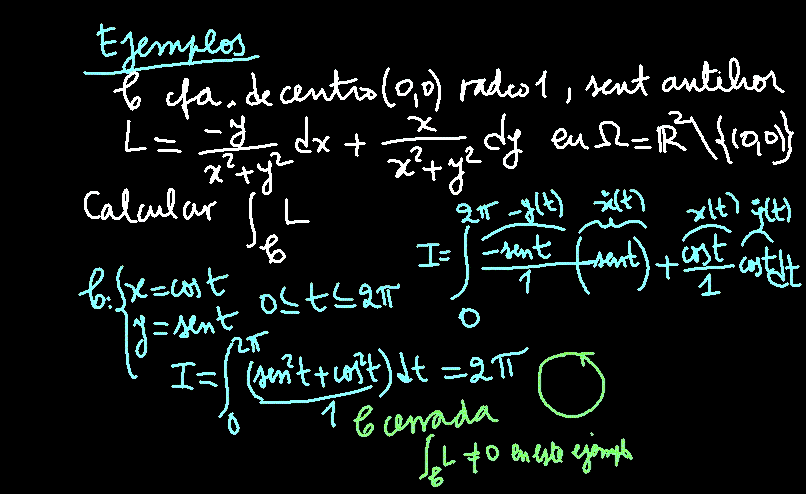 Ejemplos
C cfa. de centro (0,0) radio 1, sent antihor
L = -y/(x²+y²) dx + x/(x²+y²) dy en Ω = R² \ {(0,0)}
Calcular ∫_C L
-y(t) ẋ(t) x(t) ẏ(t)
I = ∫_0^{2π} -sent/1 (-sent) + cost/1 cost dt
C: { x = cost
y = sent 0 ≤ t ≤ 2π
I = ∫_0^{2π} (sen²t + cos²t) dt = 2π
1
C cerrada
∫_C L ≠ 0 en este ejempl